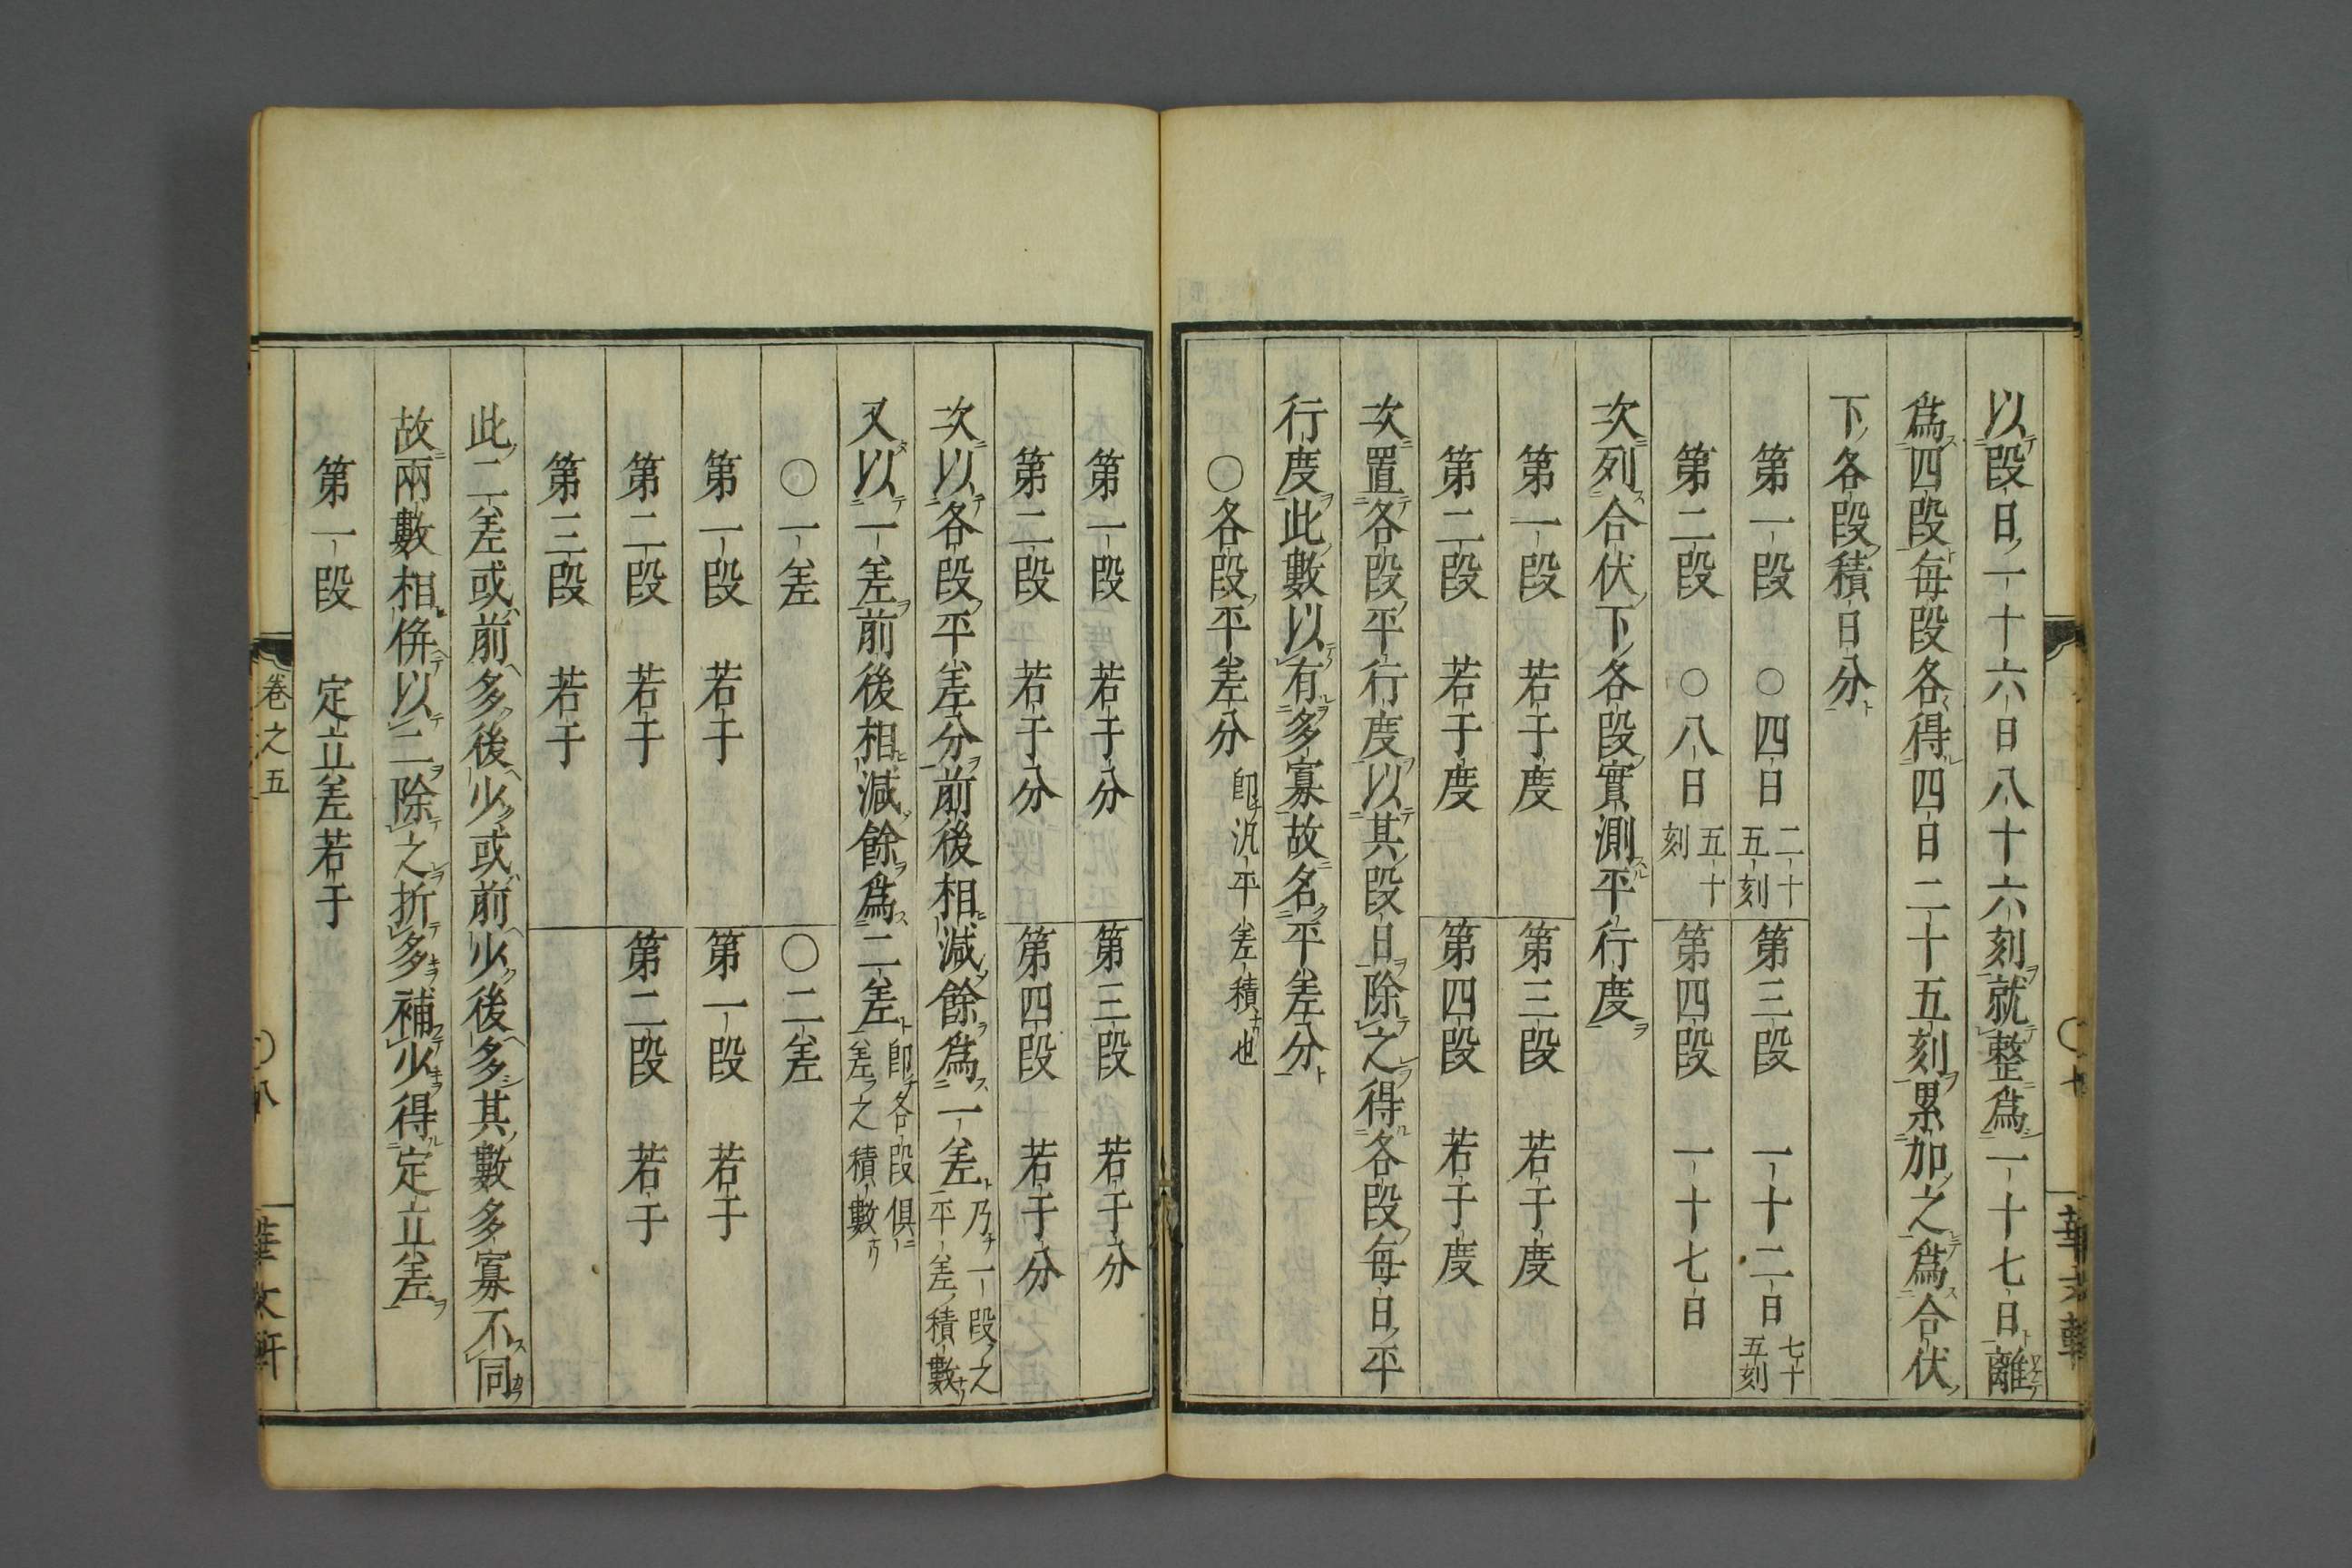 以段日一十六日八十六刻就整爲一十七日離
爲四段毎段各得四日二十五刻累加之爲合伏
下各段積日分
第一段　〇四日二十五刻　第三段　一十二日七十五刻
第二段　〇八日五十刻　第四段　一十七日
次列合伏下各段實測平行度
第一段　若干度　第三段　若干度
第二段　若干度　第四段　若干度
次置各段平行度以其段日除之得各段毎日平
行度此數以有多寡故名平差分
〇各段平差分　即汎平差積也
第一段　若干分　第三段　若干分
第二段　若干分　第四段　若干分
次以各段平差分前後相減餘爲一差乃一段之平差積數
又以一差前後相減餘爲二差即各段俱差之積數
〇一差　〇二差
第一段　若干　第一段　若干
第二段　若干　第二段　若干
第三段　若干
此二差或前多後少或前少後多其數多寡不同
故兩數相併以二除之折多補少得定立差
第一段　定立差若干
卷之五
〇八